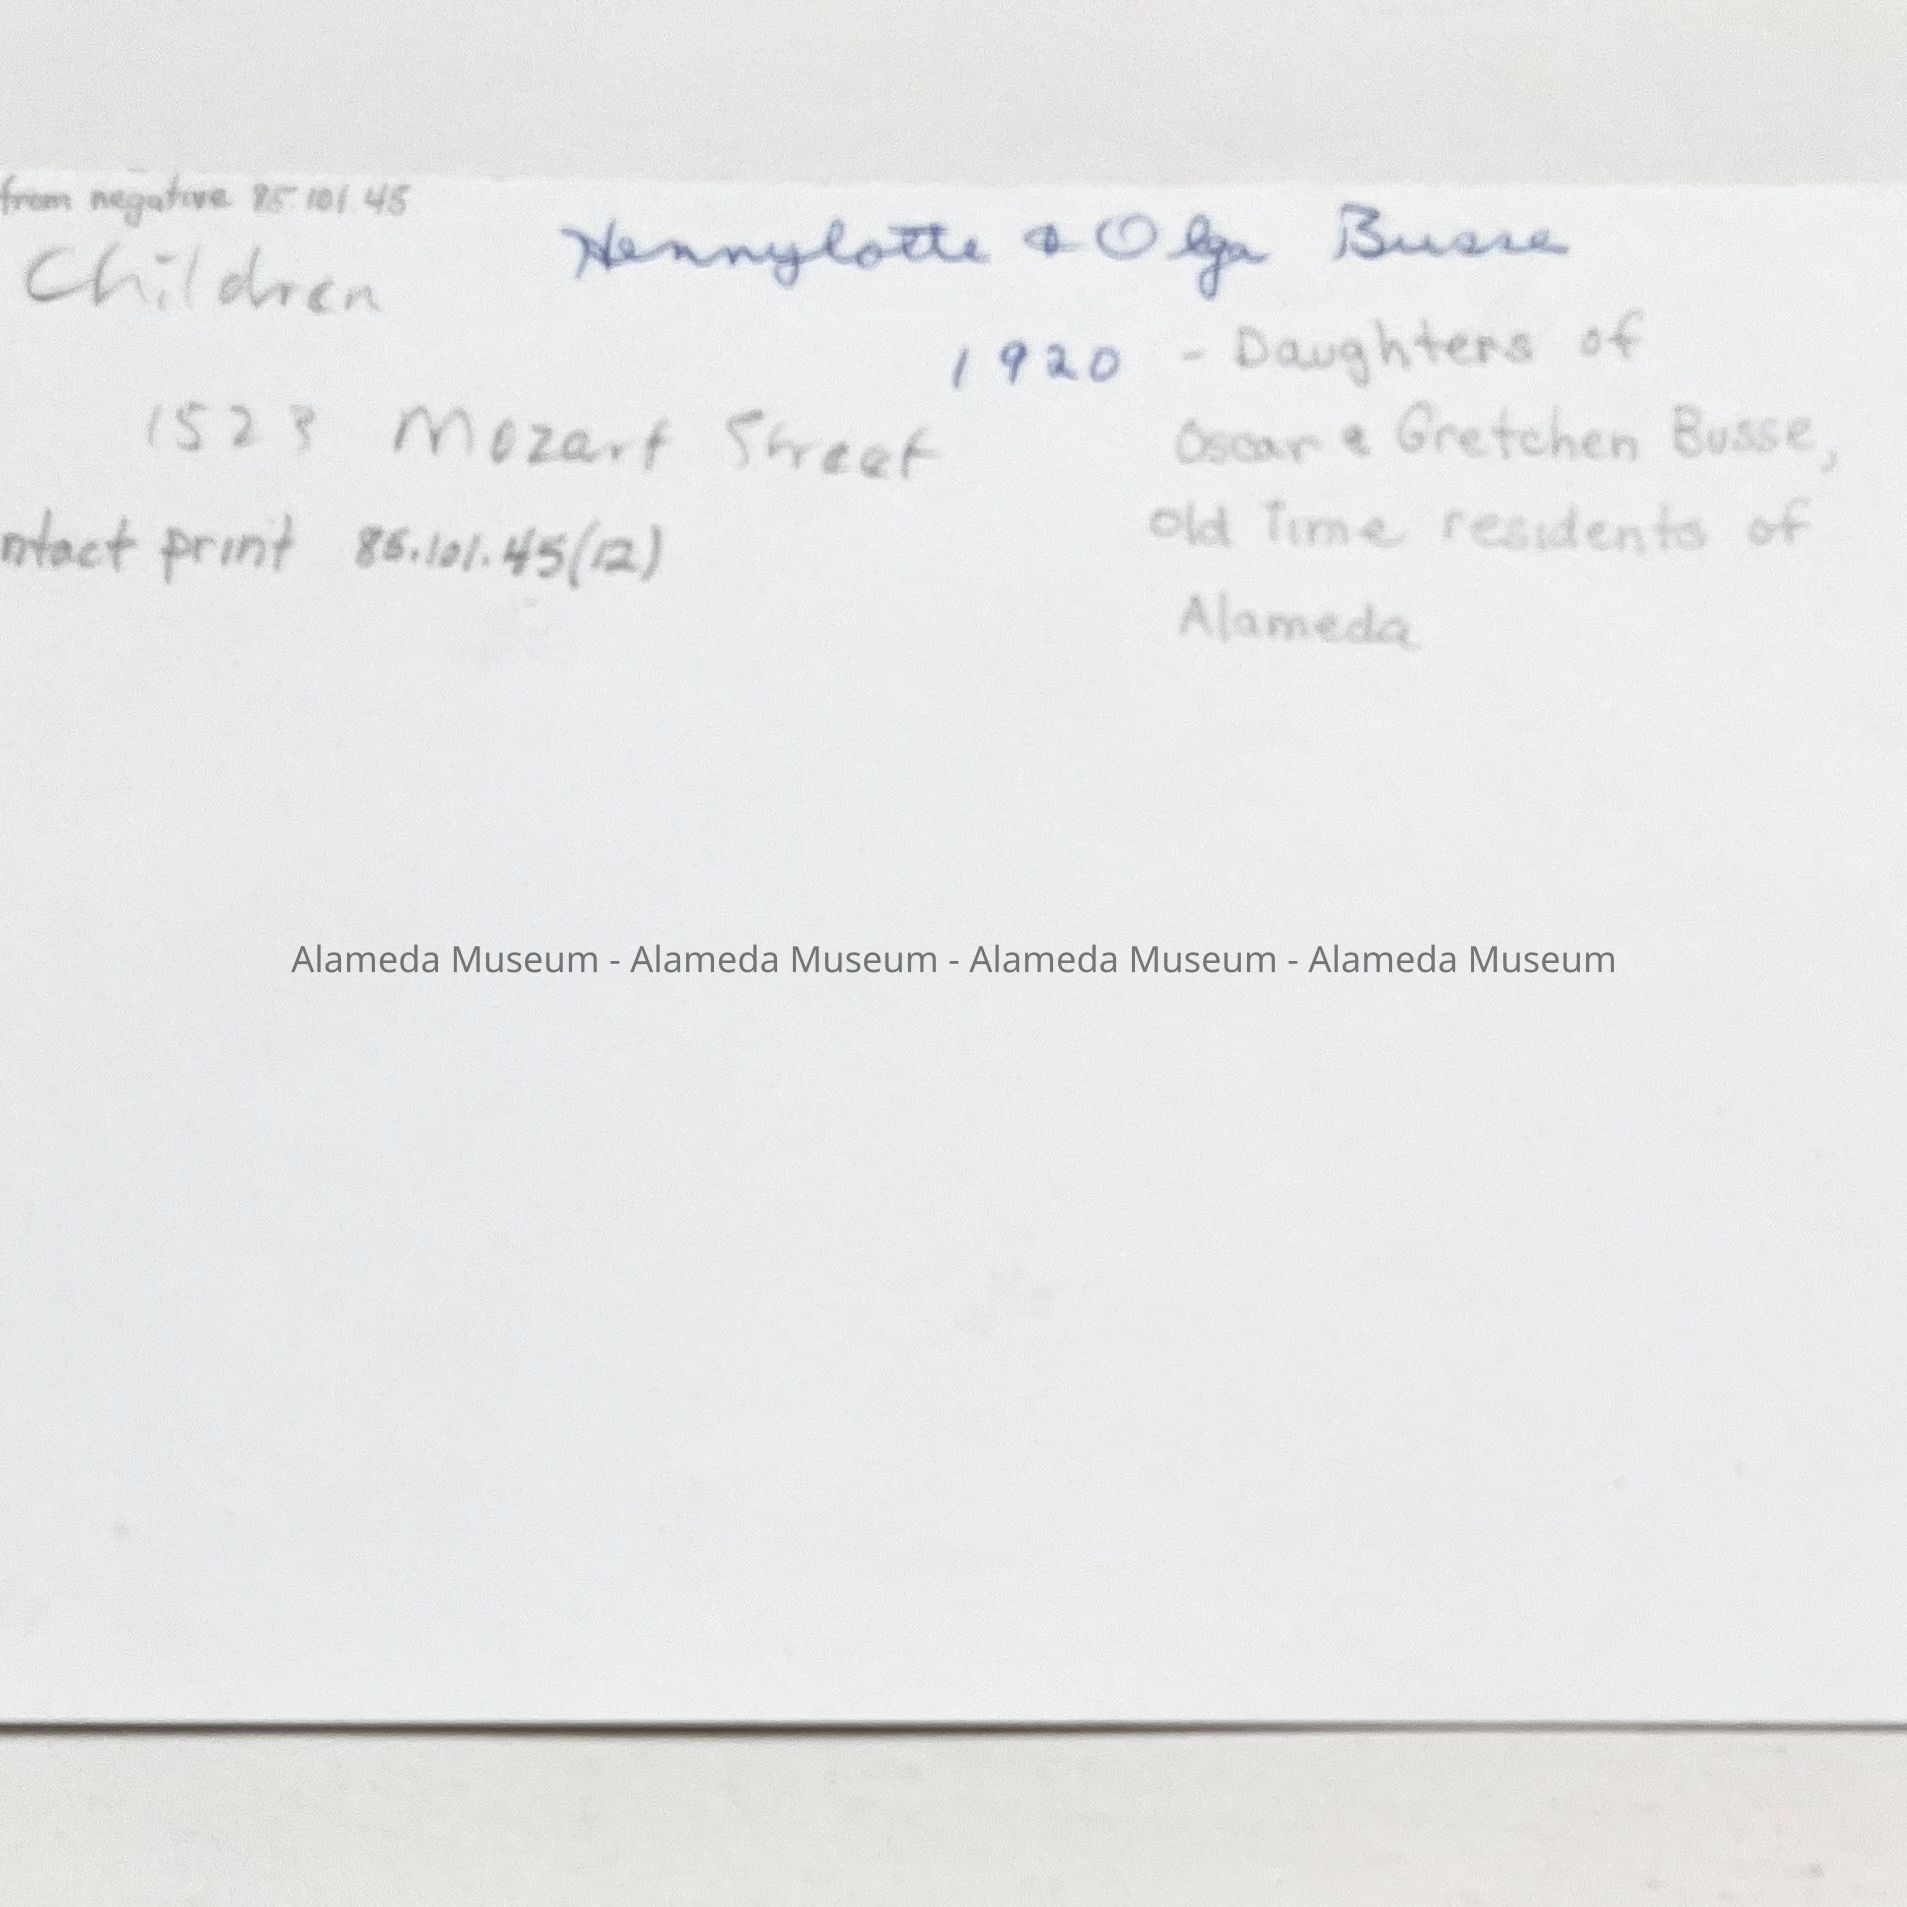 from negative 85.101.45
Children
Hennylotte & Olga Busse
1920 - Daughters of
Oscar & Gretchen Busse,
old time residents of
Alameda
1523 Mozart Street
ntact print 85.101.45(12)
Alameda Museum - Alameda Museum - Alameda Museum - Alameda Museum